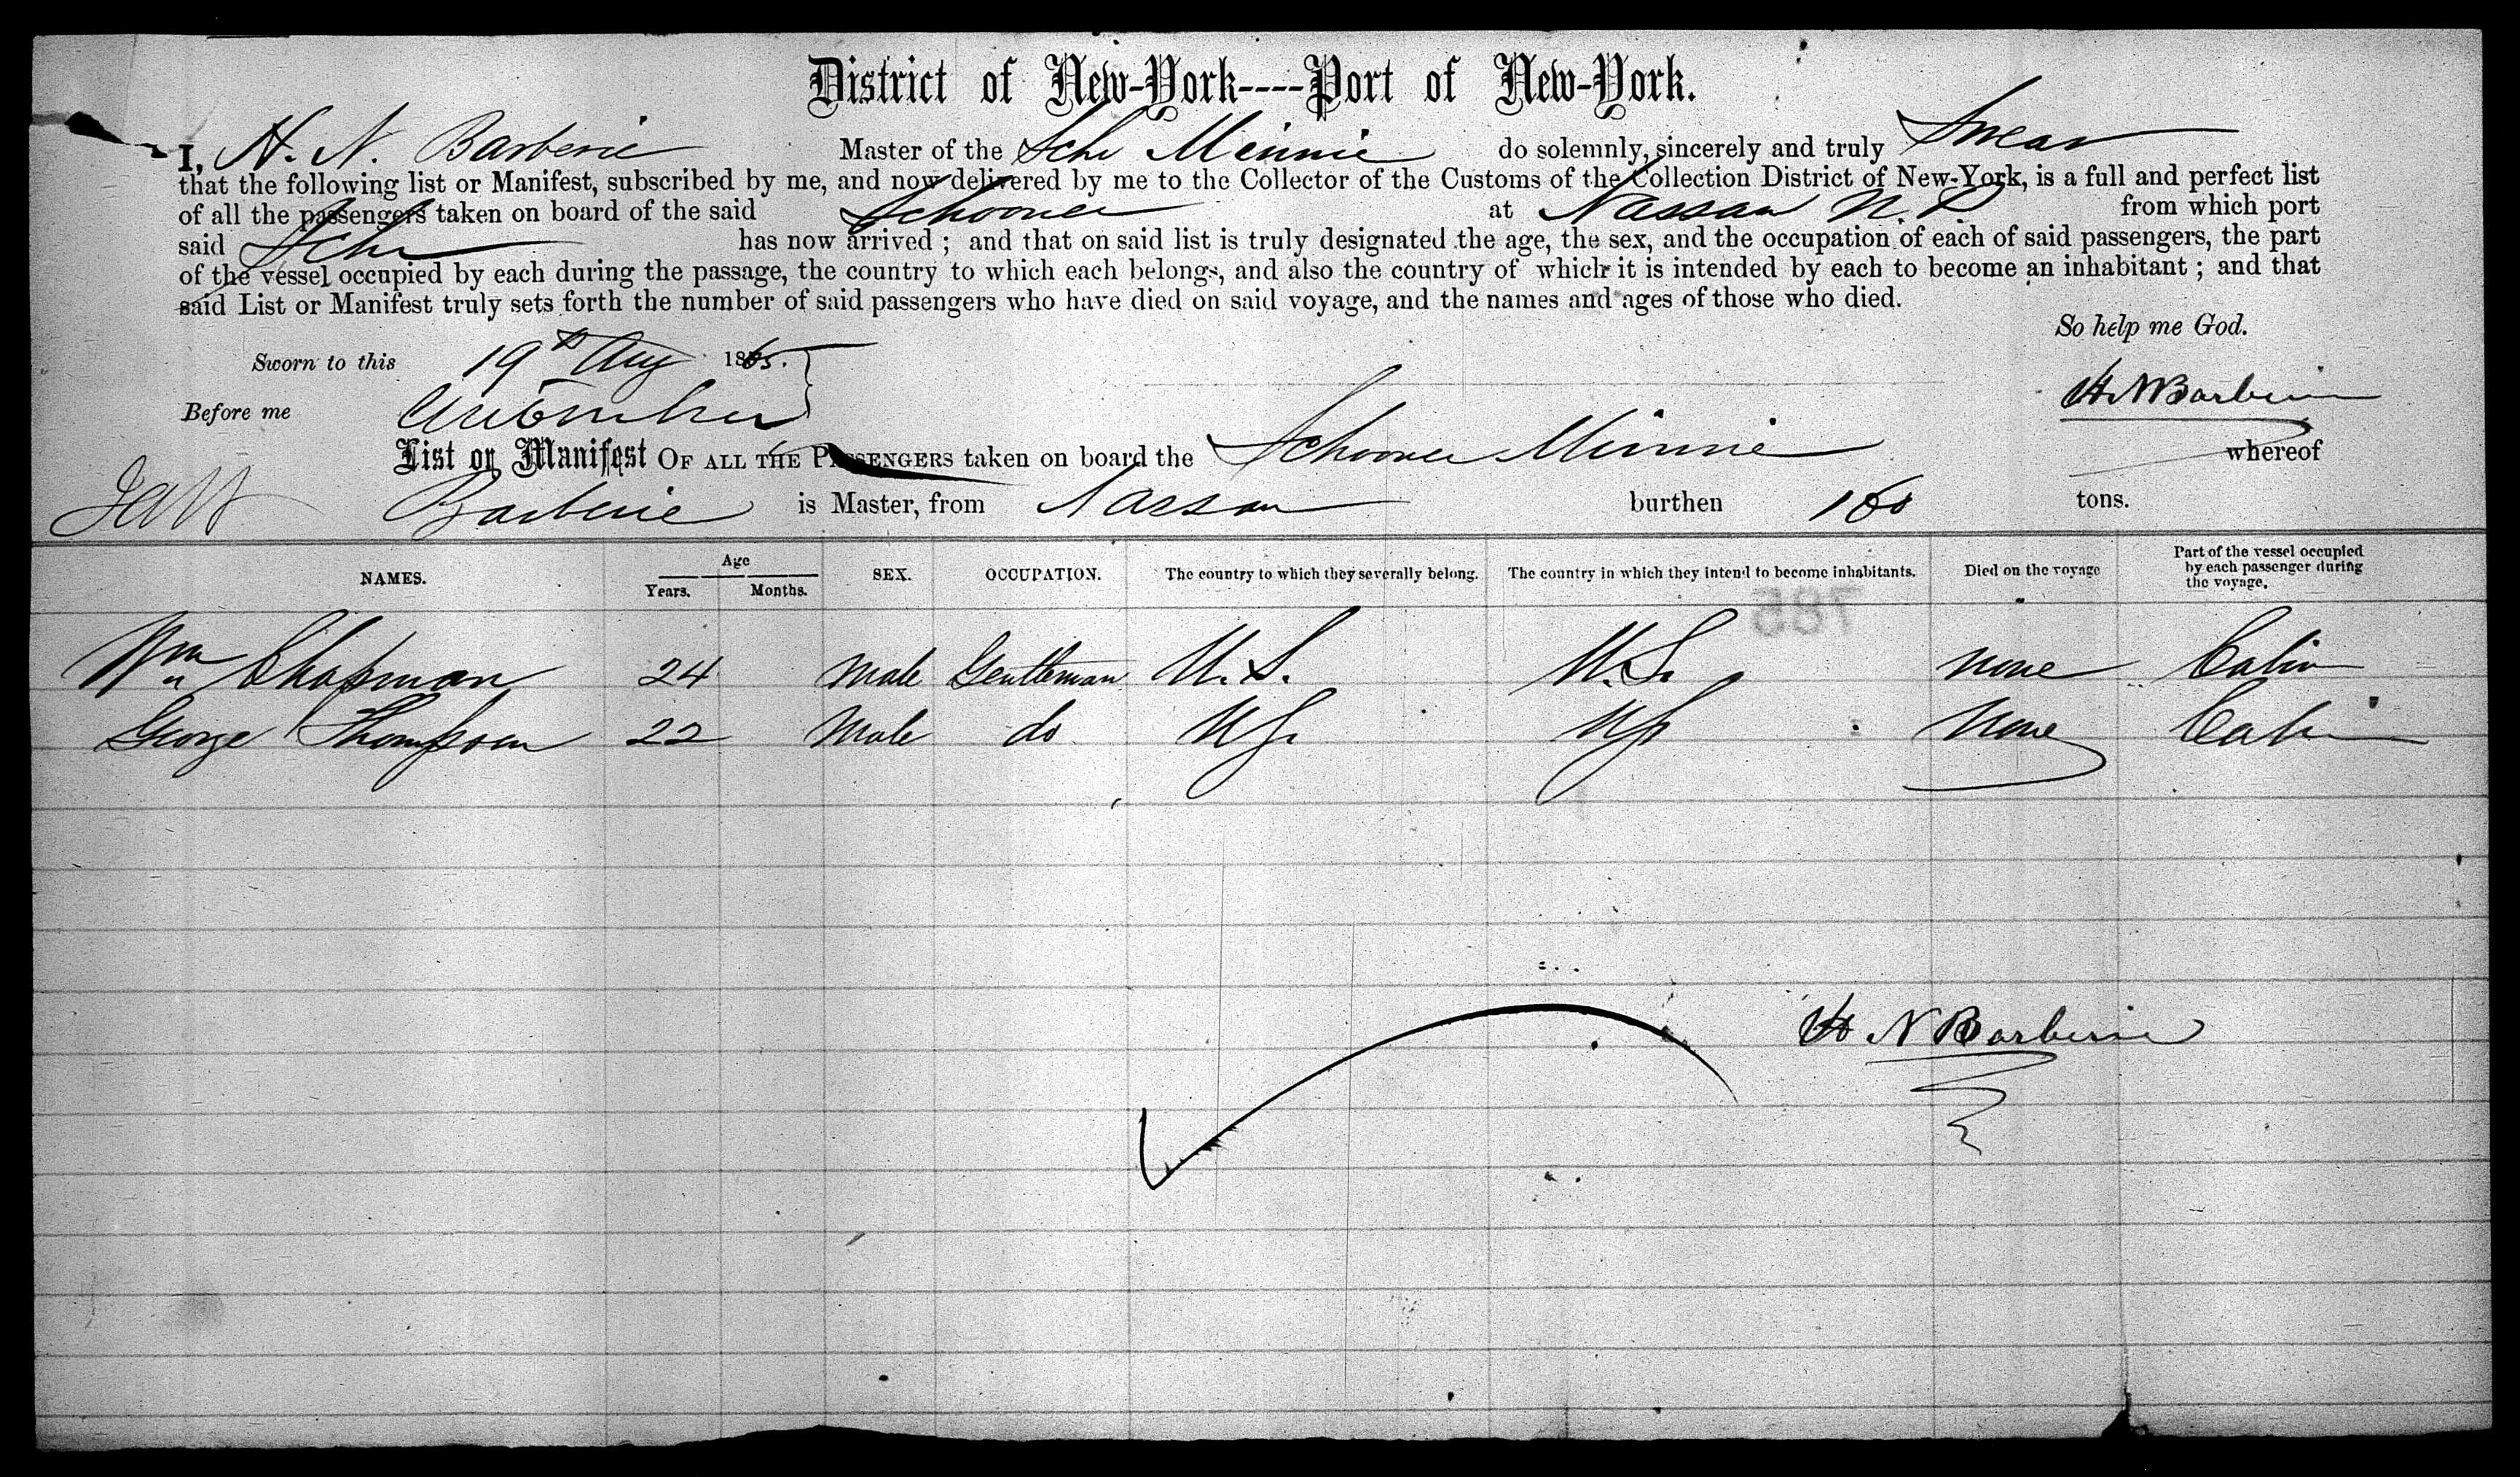 District of New-York----Port of New-York.
I, H. N. Barberie Master of the Schr Minnie do solemnly, sincerely and truly Swear
that the following list or Manifest, subscribed by me, and now delivered by me to the Collector of the Customs of the Collection District of New-York, is a full and perfect list
of all the passengers taken on board of the said Schooner at Nassau N.P from which port
said Schr has now arrived ; and that on said list is truly designated the age, the sex, and the occupation of each of said passengers, the part
of the vessel occupied by each during the passage, the country to which each belongs, and also the country of which it is intended by each to become an inhabitant ; and that
said List or Manifest truly sets forth the number of said passengers who have died on said voyage, and the names and ages of those who died.
So help me God.
Sworn to this 19th Aug 1865.
H N Barberie
Before me
List or Manifest OF ALL THE PASSENGERS taken on board the Schooner Minnie whereof
Barberie is Master, from Nassau burthen 160 tons.
NAMES. Age Years. Months. SEX. OCCUPATION. The country to which they severally belong. The country in which they intend to become inhabitants. Died on the voyage Part of the vessel occupied by each passenger during the voyage.
785
Wm Chapman 24 Male Gentleman U.S. U.S. none Cabin
George Thompson 22 Male do US. US none Cabin
H N Barberie